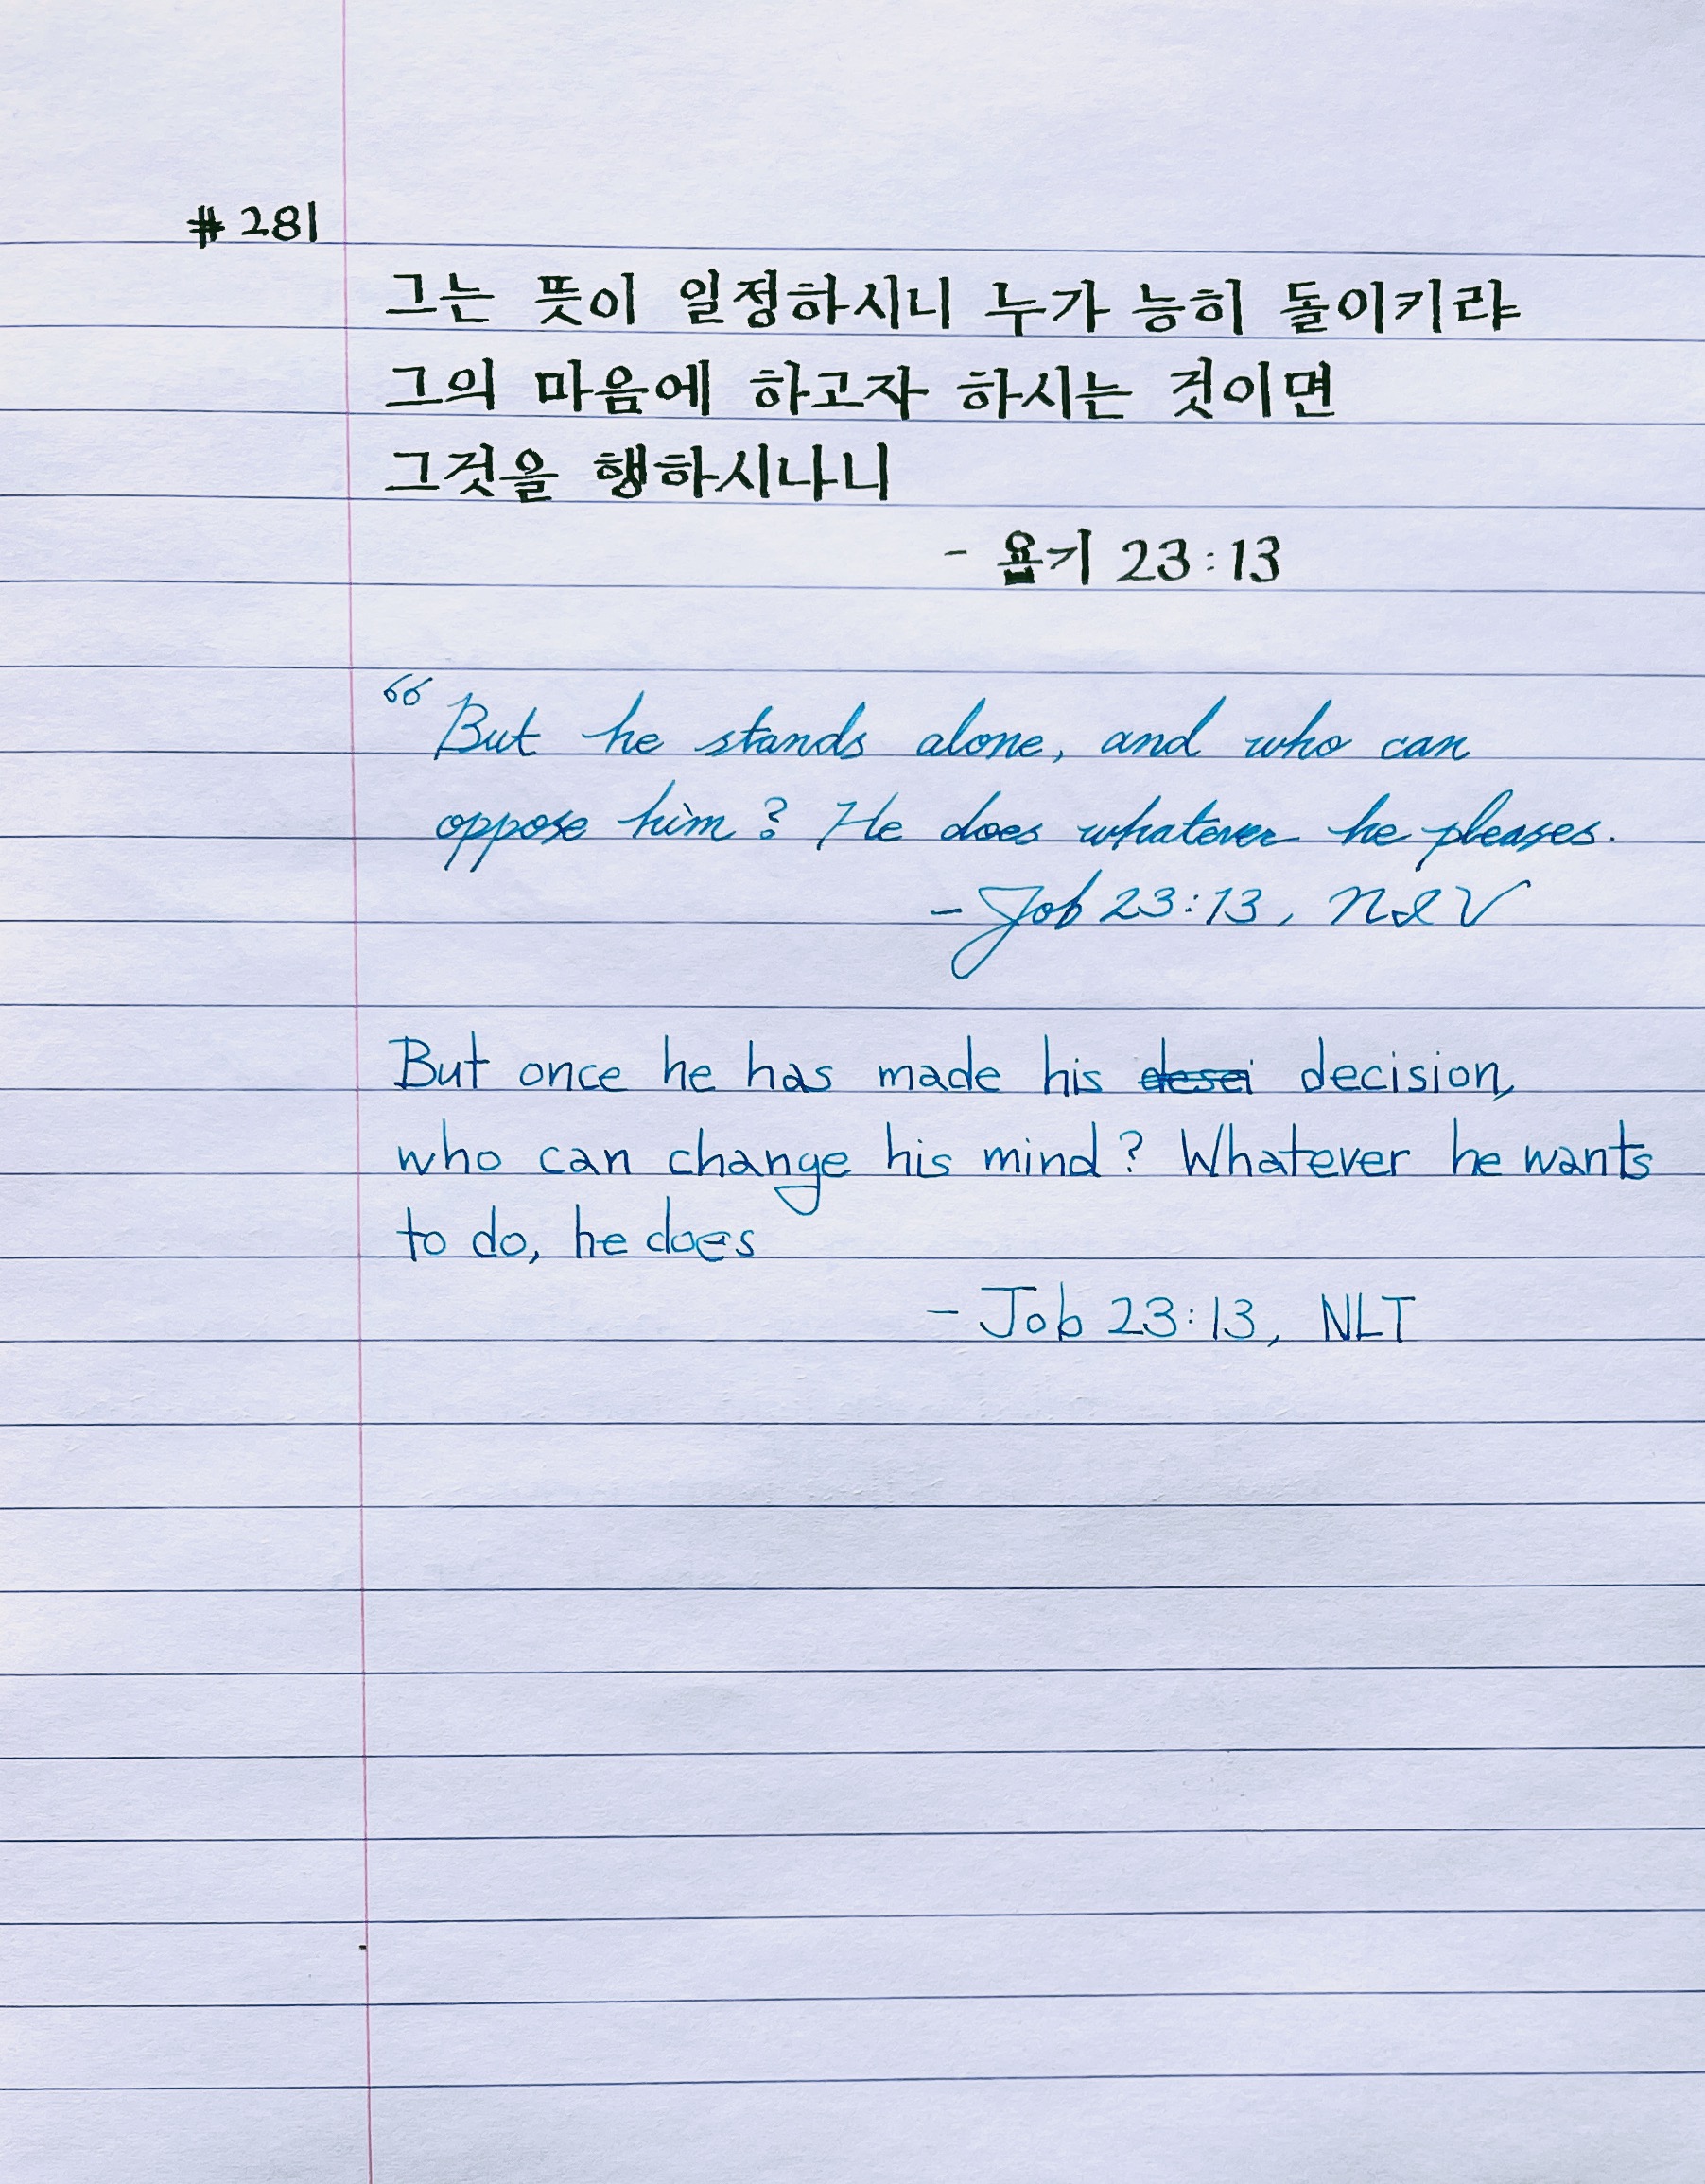 #281
그는 뜻이 일정하시니 누가 능히 돌이키랴
그의 마음에 하고자 하시는 것이면
그것을 행하시나니
- 욥기 23:13
“But he stands alone, and who can
oppose him? He does whatever he pleases.
- Job 23:13, NIV
But once he has made his desei decision,
who can change his mind? Whatever he wants
to do, he does
- Job 23:13, NLT